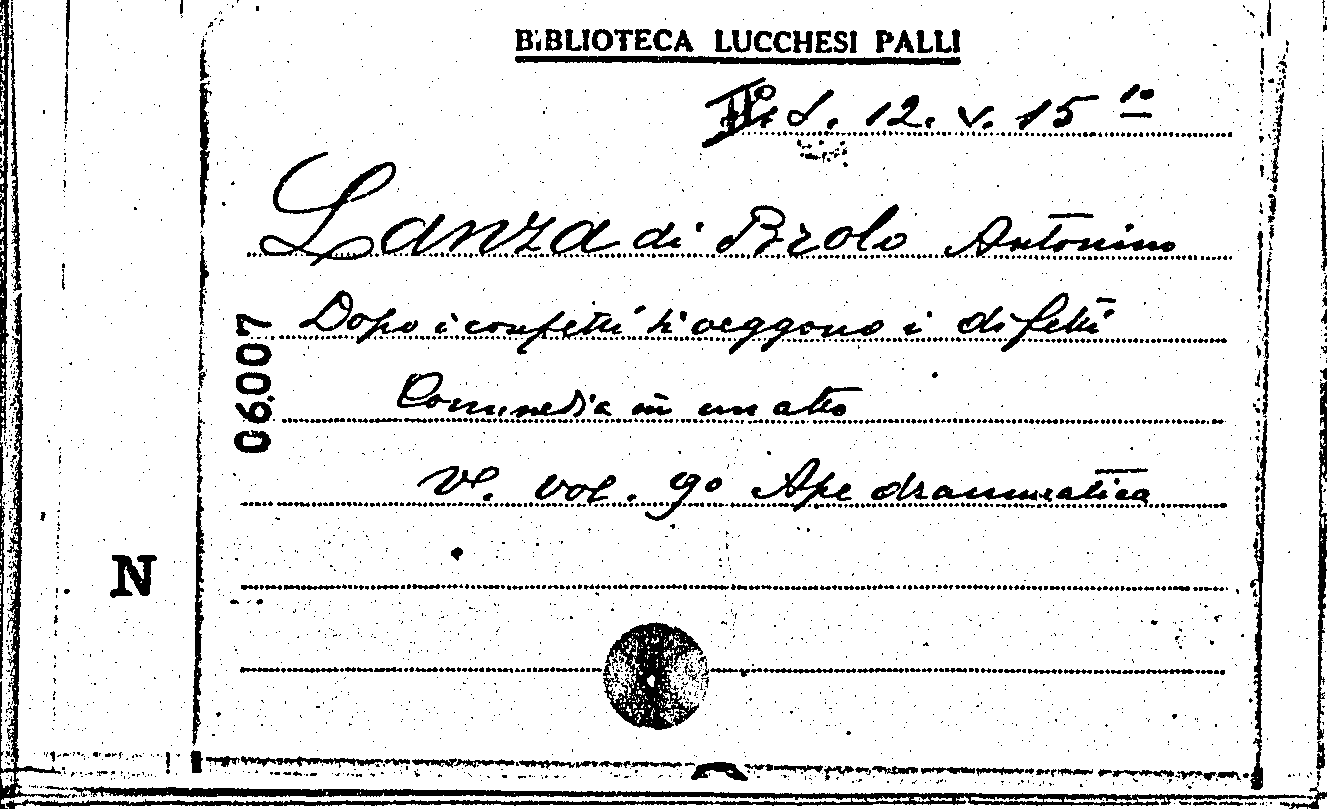 BIBLIOTECA LUCCHESI PALLI
S. 12. v. 15 1º
Lanza di Brolo Antonino
Dopo i confetti si veggono i difetti
Commedia in un atto
V. vol. 9º Ape drammatica
06.007
N